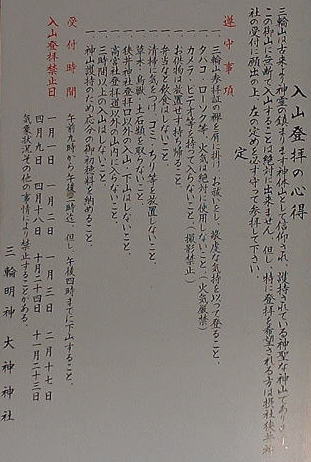 入山登拝の心得
三輪山は古来より神霊の鎮まります神体山として信仰され、護持されている神聖な神山であります。
この御山に無断で入山することは絶対に出来ません。但し特に登拝を希望される方は摂社狭井神
社の受付に願出の上、左の定めを必ず守って参拝して下さい。
定
遵守事項
一、三輪山参拝証の襷を肩に掛け、お祓いをし、敬虔な気持を以って登ること。
一、タバコ・ローソク等、火気は絶対に使用しないこと。(火気厳禁)
一、カメラ・ビデオ等を持って入らないこと。(撮影禁止)
一、お供物は放置せず持ち帰ること。
一、弁当など飲食はしないこと。
一、清掃に気を上げ、ゴミ・ちり等を放置しないこと。
一、草木・鳥獣・土石類の取らないこと。
一、狭井神社登拝口以外の入山・下山はしないこと。
一、高宮社登拝道以外の山内に入らないこと。
一、三時間以上の入山はしないこと。
一、神山護持のため応分の御初穂料を納めること。
受付時間 午前九時から午後二時迄。但し、午後四時までに下山すること。
入山登拝禁止日 一月一日 一月二日 一月三日 二月十七日
四月九日 四月十八日 十月二十四日 十一月二十三日
気象状況その他の事情により禁止することがある。
三輪明神 大神神社